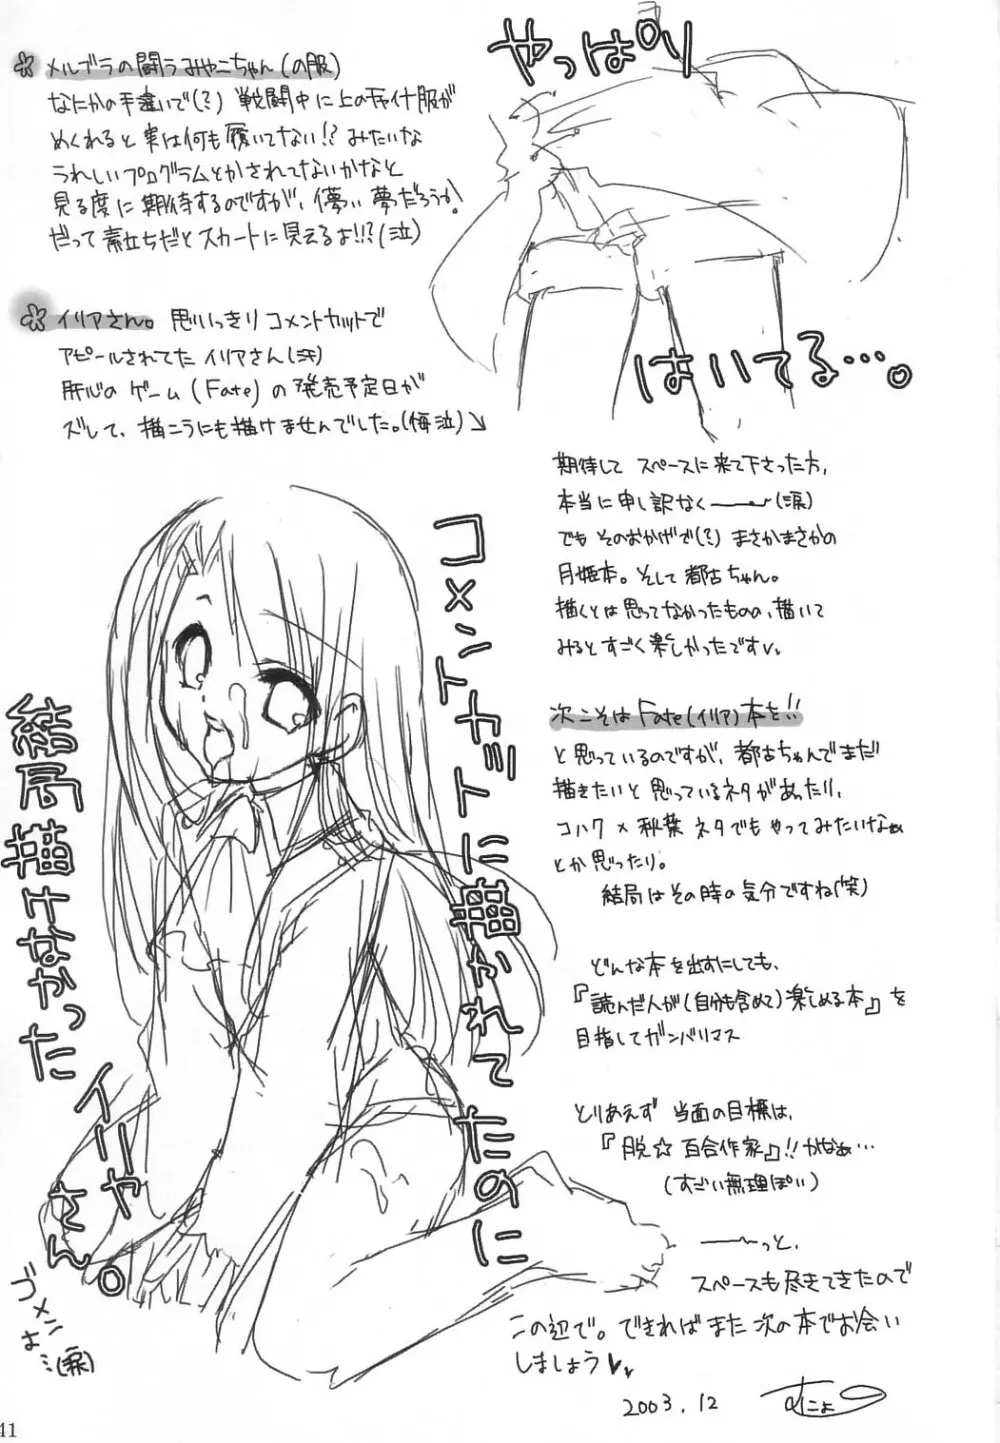 やっぱり
はいてる…。
☆ メルブラの闘うみやこちゃん(の服)
なにかの手違いで(?) 戦闘中に上のチャイナ服が
めくれると実は何も履いてない!? みたいな
うれしいプログラムとかされてないかなと
見る度に期待するのですが、儚い夢だろうか!
だって素立ちだとスカートに見えるよ!!?(泣)
☆ イリアさん。思いっきりコメントカットで
アピールされてたイリアさん(汗)
肝心のゲーム(Fate)の発売予定日が
ズレて、描こうにも描けませんでした。(悔泣)↘
期待してスペースに来て下さった方、
本当に申し訳なく——(涙)
でもそのおかげで(?)まさかまさかの
月姫本。そして都古ちゃん。
描くとは思ってなかったものの、描いて
みるとすごく楽しかったです。
次こそはFate(イリア)本を!!
と思っているのですが、都古ちゃんでまだ
描きたいと思っているネタがあったり、
コハク×秋葉ネタでもやってみたいなぁ
とか思ったり。
結局はその時の気分ですね(笑)
どんな本を出すにしても、
『読んだ人が(自分も含めて)楽しめる本』を
目指してガンバリマス
とりあえず 当面の目標は、
『脱☆百合作家』!!かなぁ…
(すごい無理ぽい)
——っと、
スペースも尽きてきたので
この辺で。できればまた次の本でお会い
しましょう♥
2003.12
コメントカットに描かれてたのに
結局描けなかった
イリヤさん。
ゴメンよ…(涙)
41